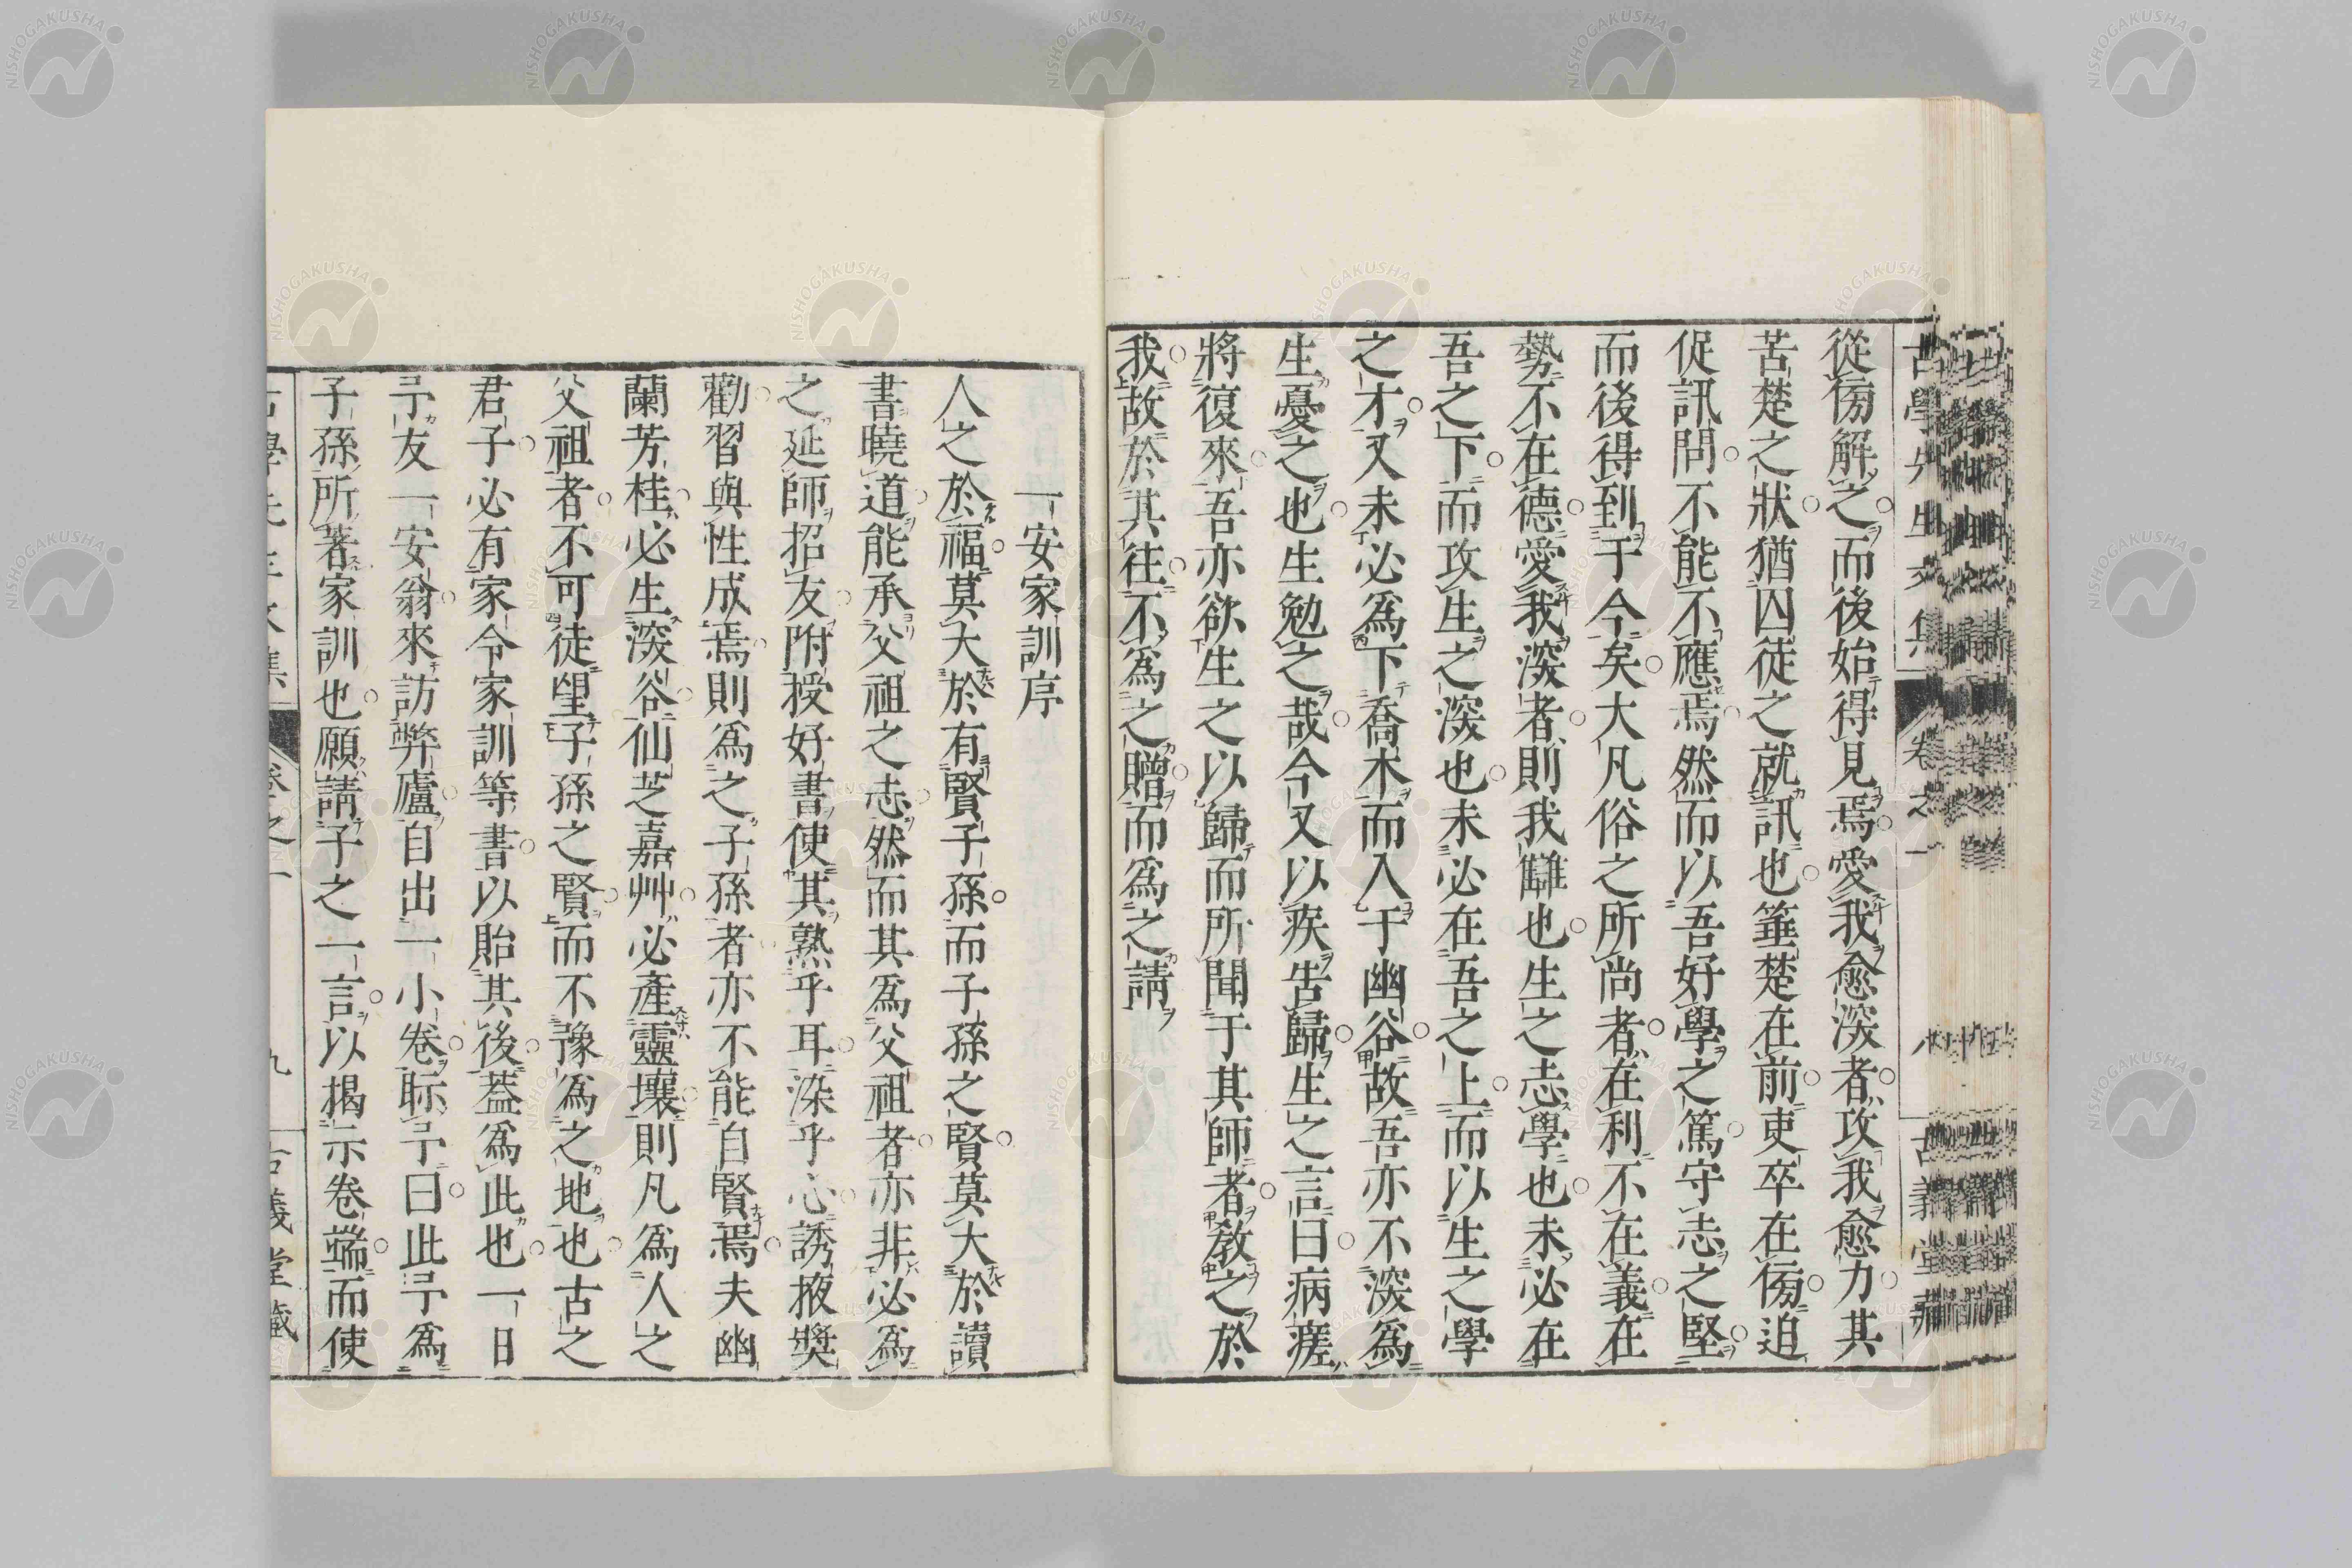 從傍解之而後始得見焉愛我愈深者攻我愈力其
苦楚之狀猶囚徒之就訊也箠楚在前吏卒在傍追
促訊問不能不應焉然而以吾好學之篤守志之堅
而後得到于今矣大凡俗之所尚者在利不在義在
勢不在德愛我深者則我讎也生之志學也未必在
吾之下而攻生之深也未必在吾之上而以生之學
之才又未必爲下喬木而入于幽谷故吾亦不深爲
生憂之也生勉之哉今又以疾告歸生之言曰病瘥
將復來吾亦欲生之以歸而所聞于其師者教之於
我故於其往不爲之贈而爲之請
一安家訓序
人之於福莫大於有賢子孫而子孫之賢莫大於讀
書曉道能承父祖之志然而其爲父祖者亦非必爲
之延師招友附授好書使其熟乎耳染乎心誘掖奬
勸習與性成焉則爲之子孫者亦不能自賢焉夫幽
蘭芳桂必生深谷仙芝嘉艸必產靈壤則凡爲人之
父祖者不可徒望子孫之賢而不豫爲之地也古之
君子必有家令家訓等書以貽其後蓋爲此也一日
予友一安翁來訪弊廬自出一小卷眎予曰此予爲
子孫所著家訓也願請子之一言以揭示卷端而使
卷之一
古義堂藏
NISHOGAKUSHA